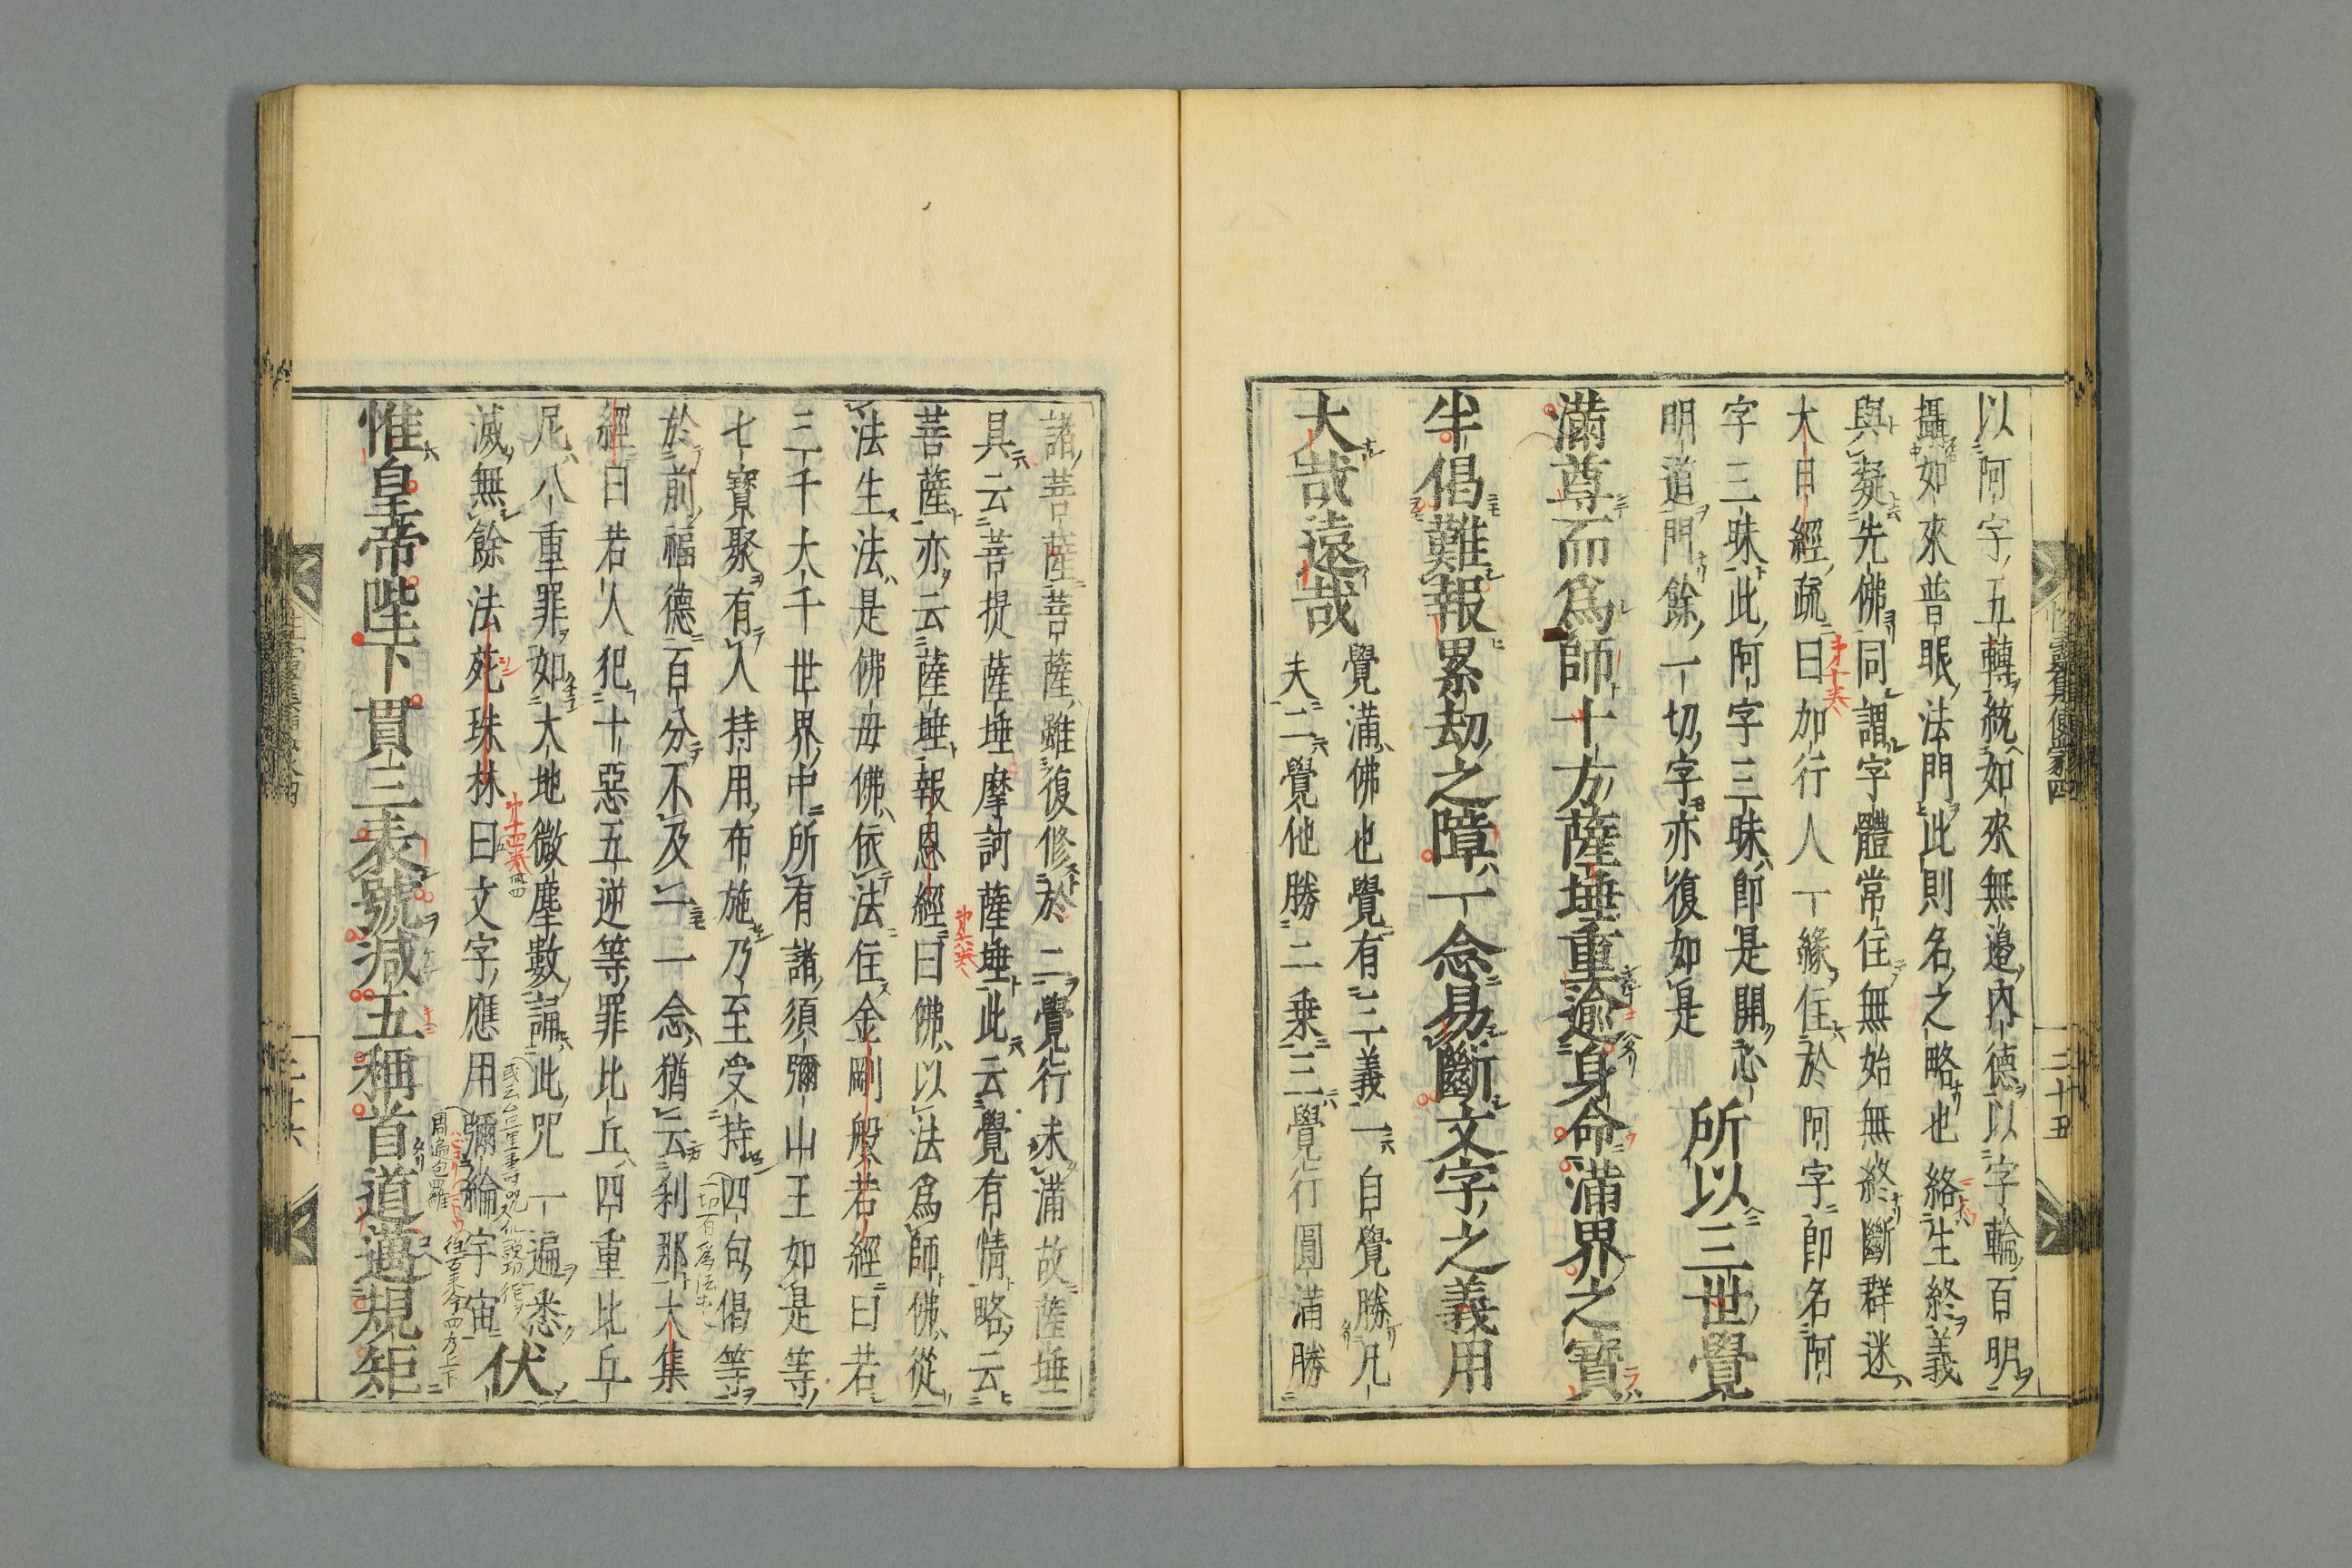 以阿字五轉統如來無邊內德以字輪百明
攝如來普眼法門此則名之略也絡生終義
與凝先佛同謂字體常住無始無終斷群迷
大日經疏曰加行人一緣住於阿字即名阿
字三昧此阿字三昧即是開心
明道門餘一切字亦復如是
所以三世覺
滿尊而爲師十方薩埵重逾身命滿界之寶
半偈難報累劫之障一念易斷文字之義用
大哉遠哉
覺滿佛也覺有二義一自覺勝凡
夫二覺他勝二乗三覺行圓滿勝
三十五
諸菩薩菩薩雖復修於二覺行未滿故薩埵
具云菩提薩埵摩訶薩埵此云覺有情略云
菩薩亦云薩埵報恩經曰佛以法爲師佛從
法生法是佛母佛依法住金剛般若經曰若
三千大千世界中所有諸須彌山王如是等
七寶聚有人持用布施乃至受持四句偈等
於前福德百分不及一一念猶云刹那大集
經曰若人犯十惡五逆等罪比丘四重比丘
尼八重罪如大地微塵數誦此咒一遍悉
滅無餘法苑珠林曰文字應用彌綸宇宙
伏
惟皇帝陛下貫三表號減五稱首道邁規矩
第六卷
周遍包羅
往古来今四方上下